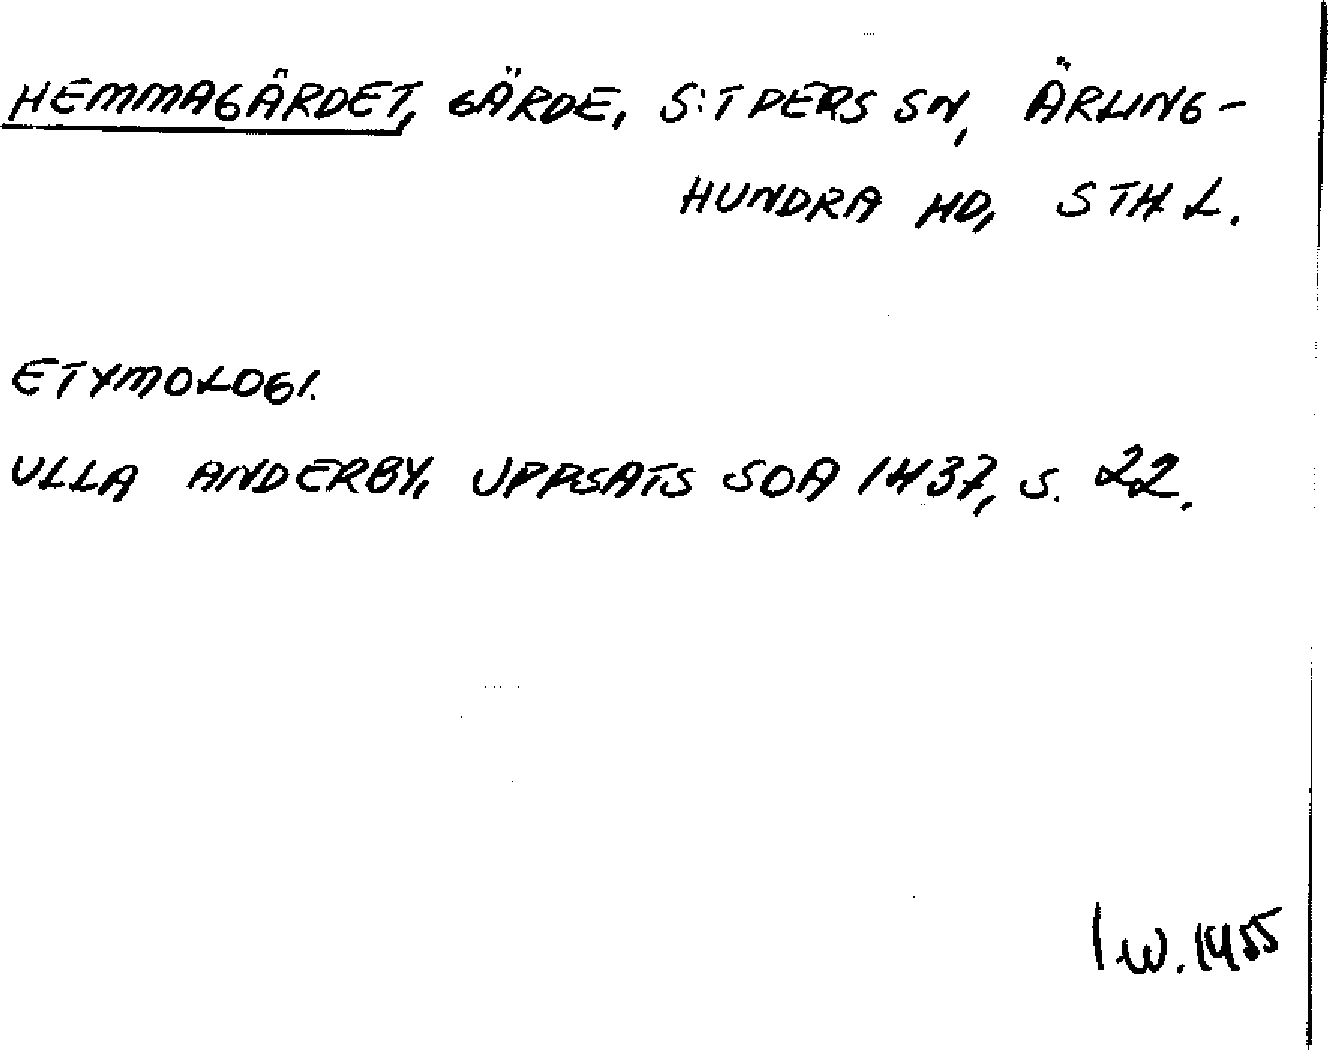 HEMMAGÄRDET, GÄRDE, S:T PERS SN, ÄRLING-
HUNDRA HD, STH L.
ETYMOLOGI.
ULLA ANDERBY, UPPSATS SOA 1437, S. 22.
I W. 1455